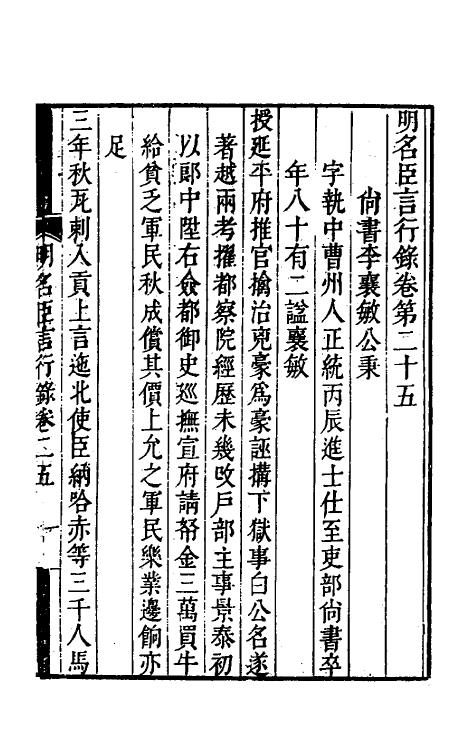 明名臣言行錄卷第二十五
尙書李襄敏公秉
字執中曹州人正統丙辰進士仕至吏部尙書卒
年八十有二諡襄敏
授延平府推官擒治兇豪爲豪誣搆下獄事白公名遂
著越兩考擢都察院經歷未幾改戶部主事景泰初
以郎中陞右僉都御史巡撫宣府請帑金三萬買牛
給貧乏軍民秋成償其價上允之軍民樂業邊餉亦
足
三年秋瓦剌入貢上言迤北使臣納哈赤等三千人馬
明名臣言行錄卷二五
一